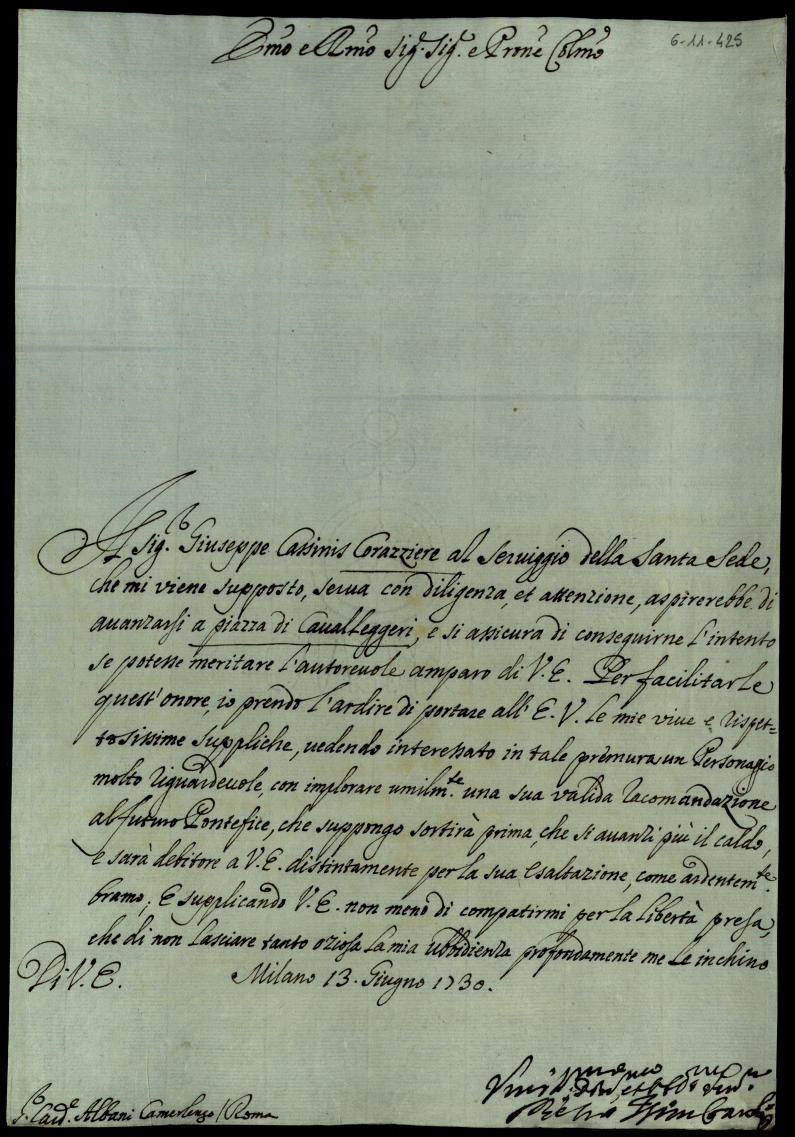 Emo e Rmo Sig.r Sig.r e Prone Colmo
6-11-425
Il Sig.r Giuseppe Cassinis Corazziere al Seruiggio della Santa Sede,
che mi viene supposto, serua con diligenza, et attenzione, aspirerebbe di
auanzarsi a piazza di Cauallleggeri, e si assicura di conseguirne l'intento
se potesse meritare l'autoreuole amparo di V. E. Per facilitarle
quest'onore, io prendo l'ardire di portare all'E. V. le mie viue e rispet=
tosissime suppliche, uedendo interessato in tale premura un Personagio
molto riguardeuole, con implorare umilm.te una sua valida racomandazione
al futuro Pontefice, che suppongo sortirà prima, che si auanzi più il caldo,
e sarà debitore a V. E. distintamente per la sua esaltazione, come ardentem.te
bramo; E supplicando V. E. non meno di compatirmi per la libertà presa,
che di non lasciare tanto oziosa la mia ubbidienza profondamente me le inchino
Di V. E. Milano 13. Giugno 1730.
S.r Card. Albani Camerlengo / Roma